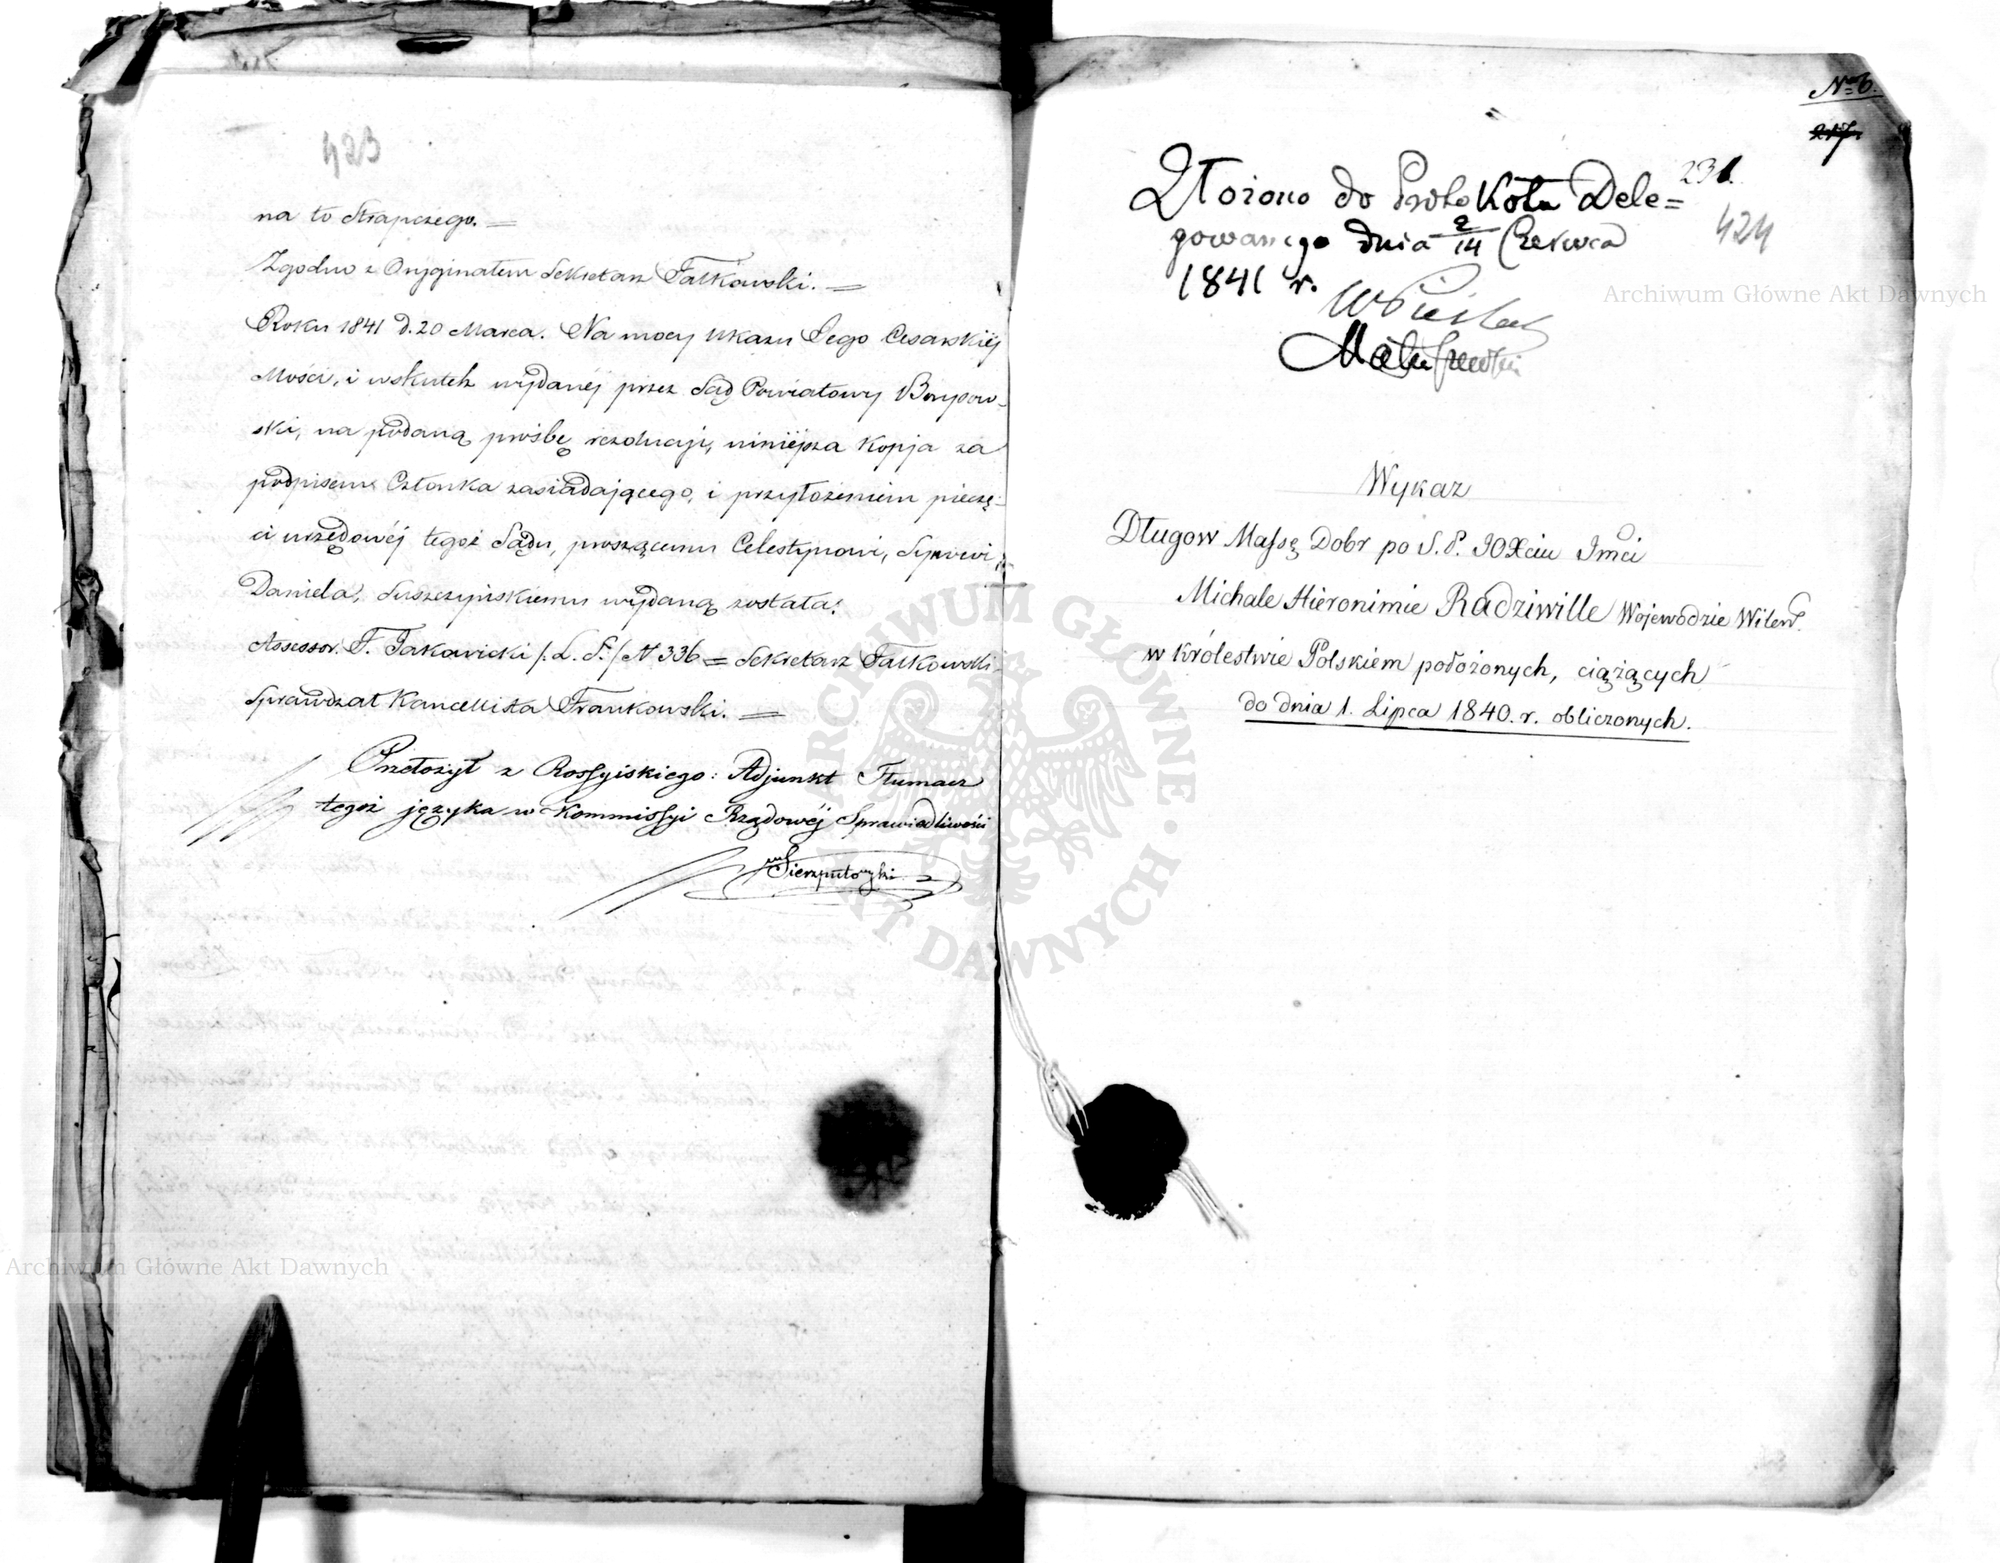 423
na to Strapczego. =
Zgodno z Oryginałem Sekretarz Fałkowski. =
Roku 1841 d. 20 Marca. Na mocy Ukazu Jego Cesarskiéj
Mości, i wskutek wydanéj przez Sąd Powiatowy Borysow-
ski, na podaną prośbę rezolucji, niniéjsza Kopja za
podpisem Członka zasiadającego, i przyłożeniem pieczę-
ci urzędowéj tegoż Sądu, proszącemu Celestynowi, Synowi
Daniela, Suszczyńskiemu wydaną została.
Assessor. F. Jakowicki /:L. S./ N 336 = Sekretarz Fałkowski.
Sprawdzał Kancellista Frankowski. =
Przełożył z Rossyiskiego: Adjunkt Tłumacz
tegoż języka w Kommissyi Rządowéj Sprawiedliwości
Sierzputowski
No 6.
217.
231.
424
Złożono do Protokołu Dele=
gowanego dnia 2/14 Czerwca
1841 r.
Matuszewski
Wykaz
Długow Massę Dobr po S. P. JOXciu Jmci
Michale Hieronimie Radziwille Wojewodzie Wileń.
w Królestwie Polskiem położonych, ciążących
do dnia 1. Lipca 1840. r. obliczonych.
Archiwum Główne Akt Dawnych
ARCHIWUM GŁÓWNE AKT DAWNYCH
Archiwum Główne Akt Dawnych